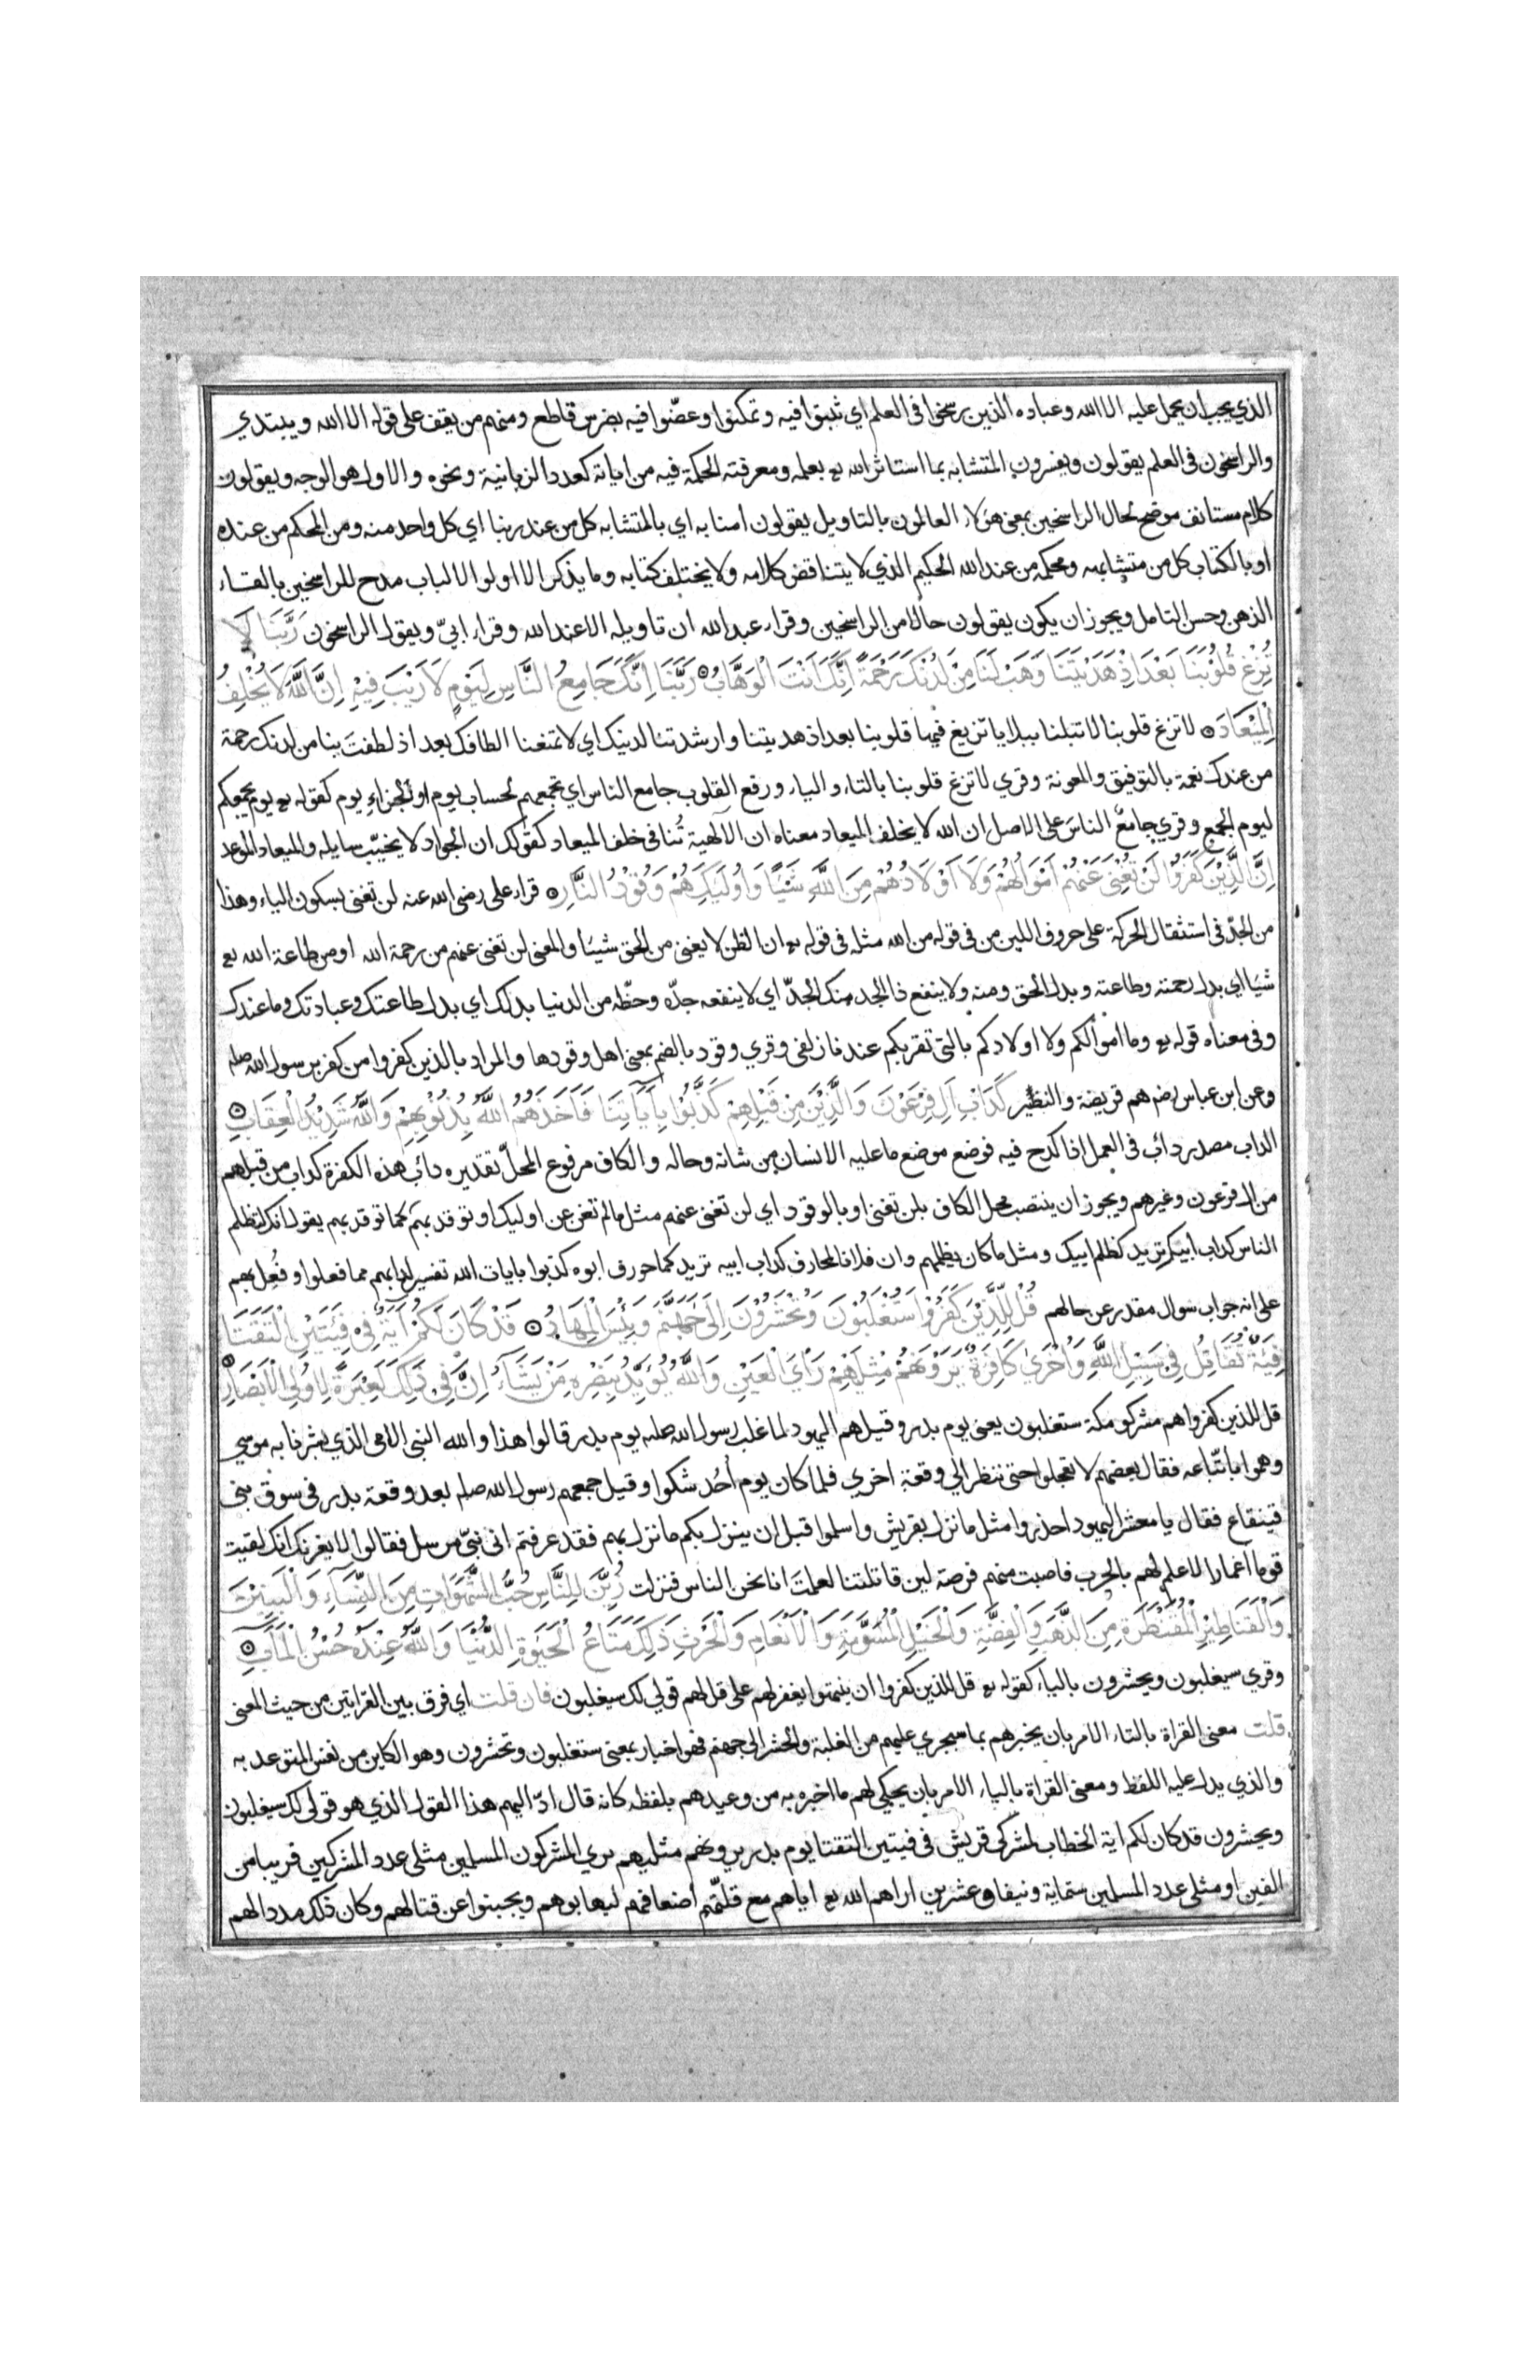 الذي يجب ان يحمل عليه الا الله وعباده الذين رسخوا في العلم اي ثبتوا فيه وتمكنوا وعضّوا فيه بضرس قاطع ومنهم من يقف على قوله الا الله ويبتدي
والراسخون في العلم يقولون ويفسرون المتشابه بما استاثر الله تع بعلمه ومعرفته الحكمة فيه من اياته كعدد الزبانية ونحوه والاول هو الوجه ويقولون
كلام مستانف موضح لحال الراسخين بمعنى هؤلاء العالمون بالتاويل يقولون امنا به اي بالمتشابه كل من عند ربنا اي كل واحد منه ومن المحكم من عنده
او بالكتاب كل من متشابهه ومحكمه من عند الله الحكيم الذي لا يتناقض كلامه ولا يختلف كتابه وما يذكر الا اولوا الالباب مدح للراسخين بالقاء
الذهن وحسن التامل ويجوز ان يكون يقولون حالا من الراسخين وقراء عبد الله ان تاويله الا عند الله وقراء ابيّ ويقول الراسخون رَبَّنَا لَا
تُزِغْ قُلُوْبَنَا بَعْدَ اِذْ هَدَيْتَنَا وَهَبْ لَنَا مِنْ لَدُنْكَ رَحْمَةً اِنَّكَ اَنْتَ الْوَهَّابُ رَبَّنَا اِنَّكَ جَامِعُ النَّاسِ لِيَوْمٍ لَا رَيْبَ فِيْهِ اِنَّ اللَّهَ لَا يُخْلِفُ
الْمِيْعَادَ لا تزغ قلوبنا لا تبلنا ببلايا تزيغ فيها قلوبنا بعد اذ هديتنا وارشدتنا لدينك اي لا تمنعنا الطافك بعد اذ لطفت بنا من لدنك رحمة
من عندك نعمة بالتوفيق والمعونة وقري لا تزغ قلوبنا بالتاء والياء ورفع القلوب جامع الناس اي تجمعهم لحساب يوم او لجزاء يوم كقوله تع يوم يجمعكم
ليوم الجمع وقري جامعٌ الناسَ على الاصل ان الله لا يخلف الميعاد معناه ان الالهية تُنافى خلف الميعاد كقولك ان الجواد لا يخيّب سايله والميعاد الموعد
اِنَّ الَّذِيْنَ كَفَرُوْا لَنْ تُغْنِىَ عَنْهُمْ اَمْوَالُهُمْ وَلَا اَوْلَادُهُمْ مِنَ اللَّهِ شَيْئًا وَاُولٰئِكَ هُمْ وَقُوْدُ النَّارِ قراء على رضى الله عنه لن تغنى بسكون الياء وهذا
من الجدّ في استثقال الحركة على حروف اللين من في قوله من الله مثله في قوله تع ان الظن لا يغنى من الحق شيئا والمعنى لن تغنى عنهم من رحمة الله او من طاعة الله تع
شيئا اي بدل رحمته وطاعته وبدل الحق ومنه ولا ينفع ذا الجد منك الجدّ اي لا ينفعه جدّه وحظّه من الدنيا بدلك اي بدل طاعتك وعبادتك وما عندك
وفي معناه قوله تع وما اموالكم ولا اولادكم بالتي تقربكم عندنا زلفى وقري وقود بالضم بمعنى اهل وقودها والمراد بالذين كفروا من كفر برسول الله صلم
وعن ابن عباس رضم هم قريضة والنظير كَدَاْبِ اٰلِ فِرْعَوْنَ وَالَّذِيْنَ مِنْ قَبْلِهِمْ كَذَّبُوْا بِاٰيَاتِنَا فَاَخَذَهُمُ اللَّهُ بِذُنُوْبِهِمْ وَاللَّهُ شَدِيْدُ الْعِقَابِ
الداب مصدر دائب في العمل اذا كدح فيه فوضع موضع ما عليه الانسان من شانه وحاله والكاف مرفوع المحلّ تقديره دائب هذه الكفرة كداب من قبلهم
من ال فرعون وغيرهم ويجوز ان ينتصب محل الكاف بلن تغنى او بالوقود اي لن تغنى عنهم مثل ما لم تغن عن اوليك او توقد بهم كما توقد بهم يقول انك لتظلم
الناس كداب ابيك تريد كظلم ابيك ومثل ما كان يظلمهم وان فلانا لمحارف كداب ابيه تريد كما حورف ابوه كذبوا بايات الله تفسير لدابهم مما فعلوا وفُعِل بهم
على انه جواب سوال مقدر عن حالهم قُلْ لِلَّذِيْنَ كَفَرُوْا سَتُغْلَبُوْنَ وَتُحْشَرُوْنَ اِلَى جَهَنَّمَ وَبِئْسَ الْمِهَادُ قَدْ كَانَ لَكُمْ اٰيَةٌ فِى فِئَتَيْنِ الْتَقَتَا
فِئَةٌ تُقَاتِلُ فِى سَبِيْلِ اللَّهِ وَاُخْرٰى كَافِرَةٌ يَرَوْنَهُمْ مِثْلَيْهِمْ رَاْيَ الْعَيْنِ وَاللَّهُ يُؤَيِّدُ بِنَصْرِهِ مَنْ يَشَاءُ اِنَّ فِى ذٰلِكَ لَعِبْرَةً لِاُولِى الْاَبْصَارِ
قل للذين كفروا هم مشركو مكة ستغلبون يعنى يوم بدر وقيل هم اليهود لما غلب رسول الله صلم يوم بدر قالوا هذا والله النبى الامى الذي بشرنا به موسي
وهموا باتّباعه فقال بعضهم لا تعجلوا حتى ننظر الي وقعة اخري فلما كان يوم اُحُد شكوا وقيل جمعهم رسول الله صلم بعد وقعة بدر في سوق بنى
قينقاع فقال يا معشر اليهود احذروا مثل ما نزل بقريش واسلموا قبل ان ينزل بكم ما نزل بهم فقد عرفتم انى نبىّ مرسل فقالوا لا يغرنك انك لقيت
قوما اغمارا لا علم لهم بالحرب فاصبت منهم فرصة لين قاتلتنا لعلمتَ انا نحن الناس فنزلت زُيِّنَ لِلنَّاسِ حُبُّ الشَّهَوَاتِ مِنَ النِّسَاءِ وَالْبَنِيْنَ
وَالْقَنَاطِيْرِ الْمُقَنْطَرَةِ مِنَ الذَّهَبِ وَالْفِضَّةِ وَالْخَيْلِ الْمُسَوَّمَةِ وَالْاَنْعَامِ وَالْحَرْثِ ذٰلِكَ مَتَاعُ الْحَيٰوةِ الدُّنْيَا وَاللَّهُ عِنْدَهُ حُسْنُ الْمَاٰبِ
وقري سيغلبون ويحشرون بالياء كقوله تع قل للذين كفروا ان ينتهوا يغفر لهم على قل لهم قولي لك سيغلبون فان قلت اي فرق بين القراتين من حيث المعنى
قلت معنى القراة بالتاء الامر بان يخبرهم بما سيجري عليهم من الغلبة والحشر الى جهنم فهو اخبار بمعنى ستغلبون وتحشرون وهو الكاين من نفس المتوعد به
والذي يدل عليه اللفظ ومعنى القراة بالياء الامر بان يحكي لهم ما اخبره به من وعيدهم بلفظه كانه قال ادّ اليهم هذا القول الذي هو قولى لك سيغلبون
ويحشرون قد كان لكم اية الخطاب لمشركى قريش في فيتين التقتا يوم بدر يرونهم مثليهم يري المشركون المسلمين مثلى عدد المشركين قريبا من
الفين او مثلى عدد المسلمين ستماية ونيفا وعشرين اراهم الله تع اياهم مع قلّتهم اضعافهم ليهابوهم ويجبنوا عن قتالهم وكان ذلك مددا لهم